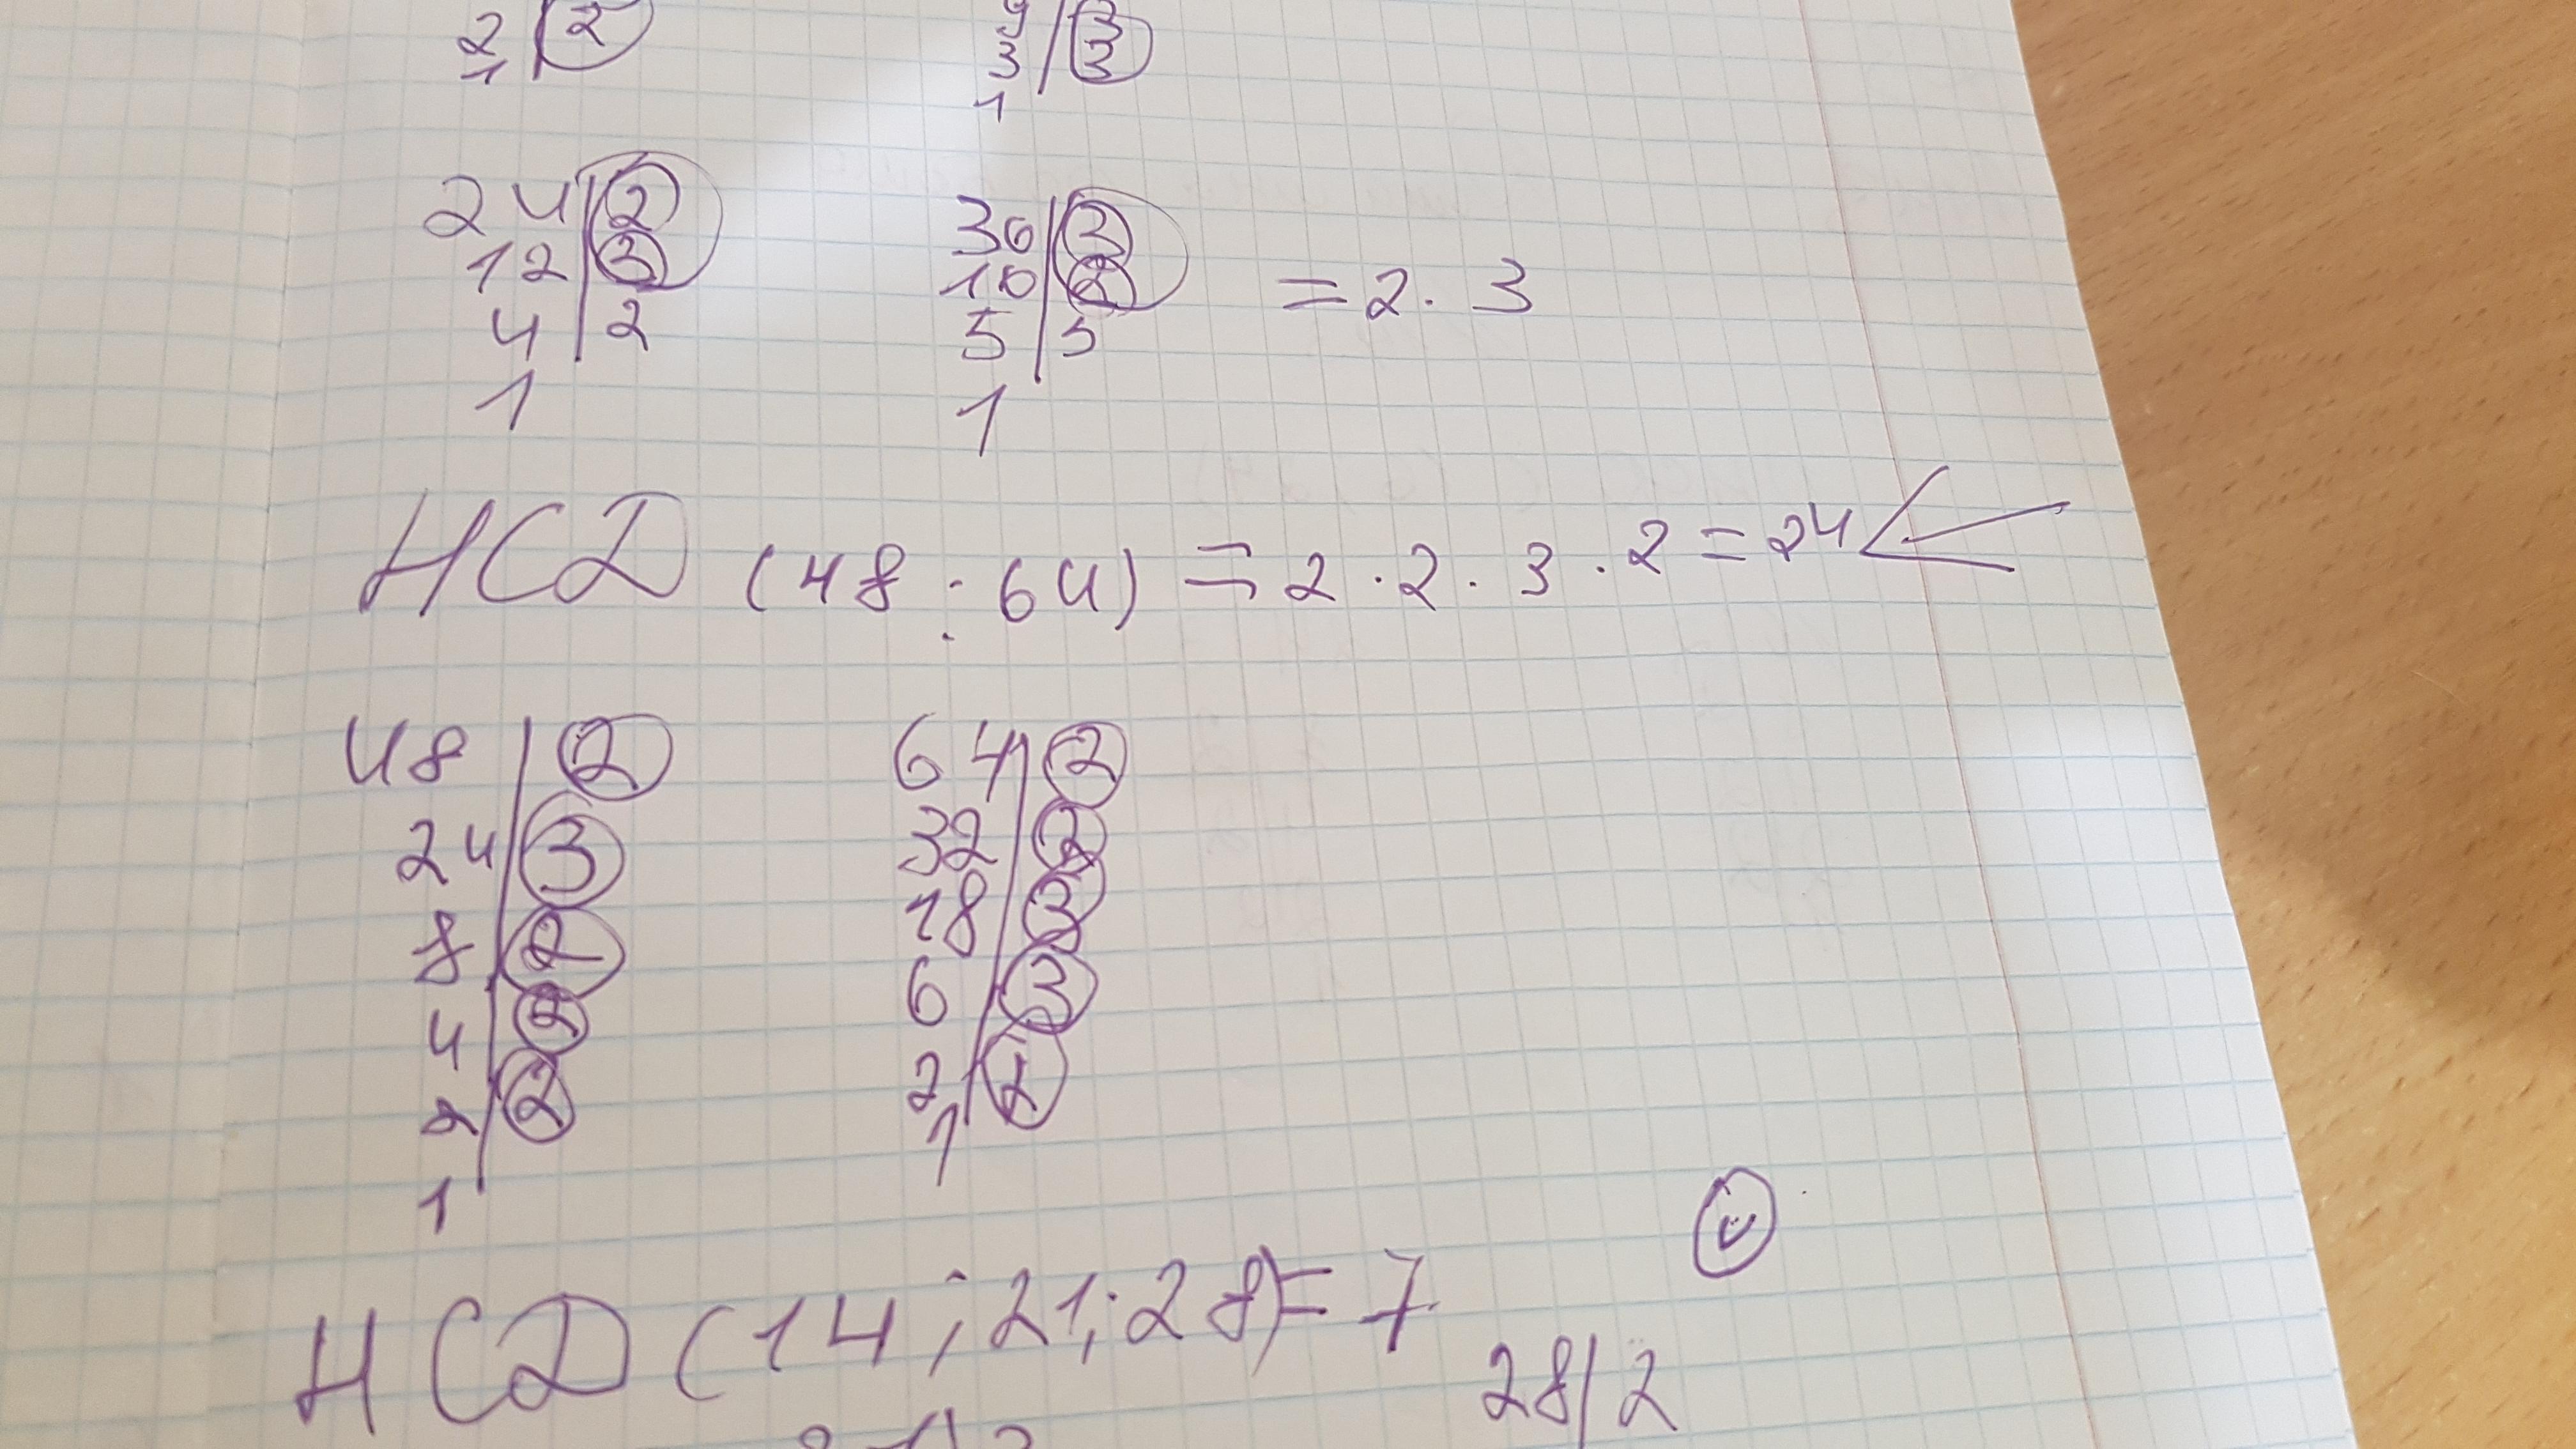 2 | 2 9 | 3
1 3 | 3
1
24 | 2 30 | 3
12 | 3 10 | 2 = 2 · 3
4 | 2 5 | 5
1 1
HCD (48 ; 64) = 2 · 2 · 3 · 2 = 24
48 | 2 64 | 2
24 | 3 32 | 2
8 | 2 18 | 3
4 | 2 6 | 3
2 | 2 2 | 2
1 1
HCD (14 ; 21 ; 28) = 7
28 | 2